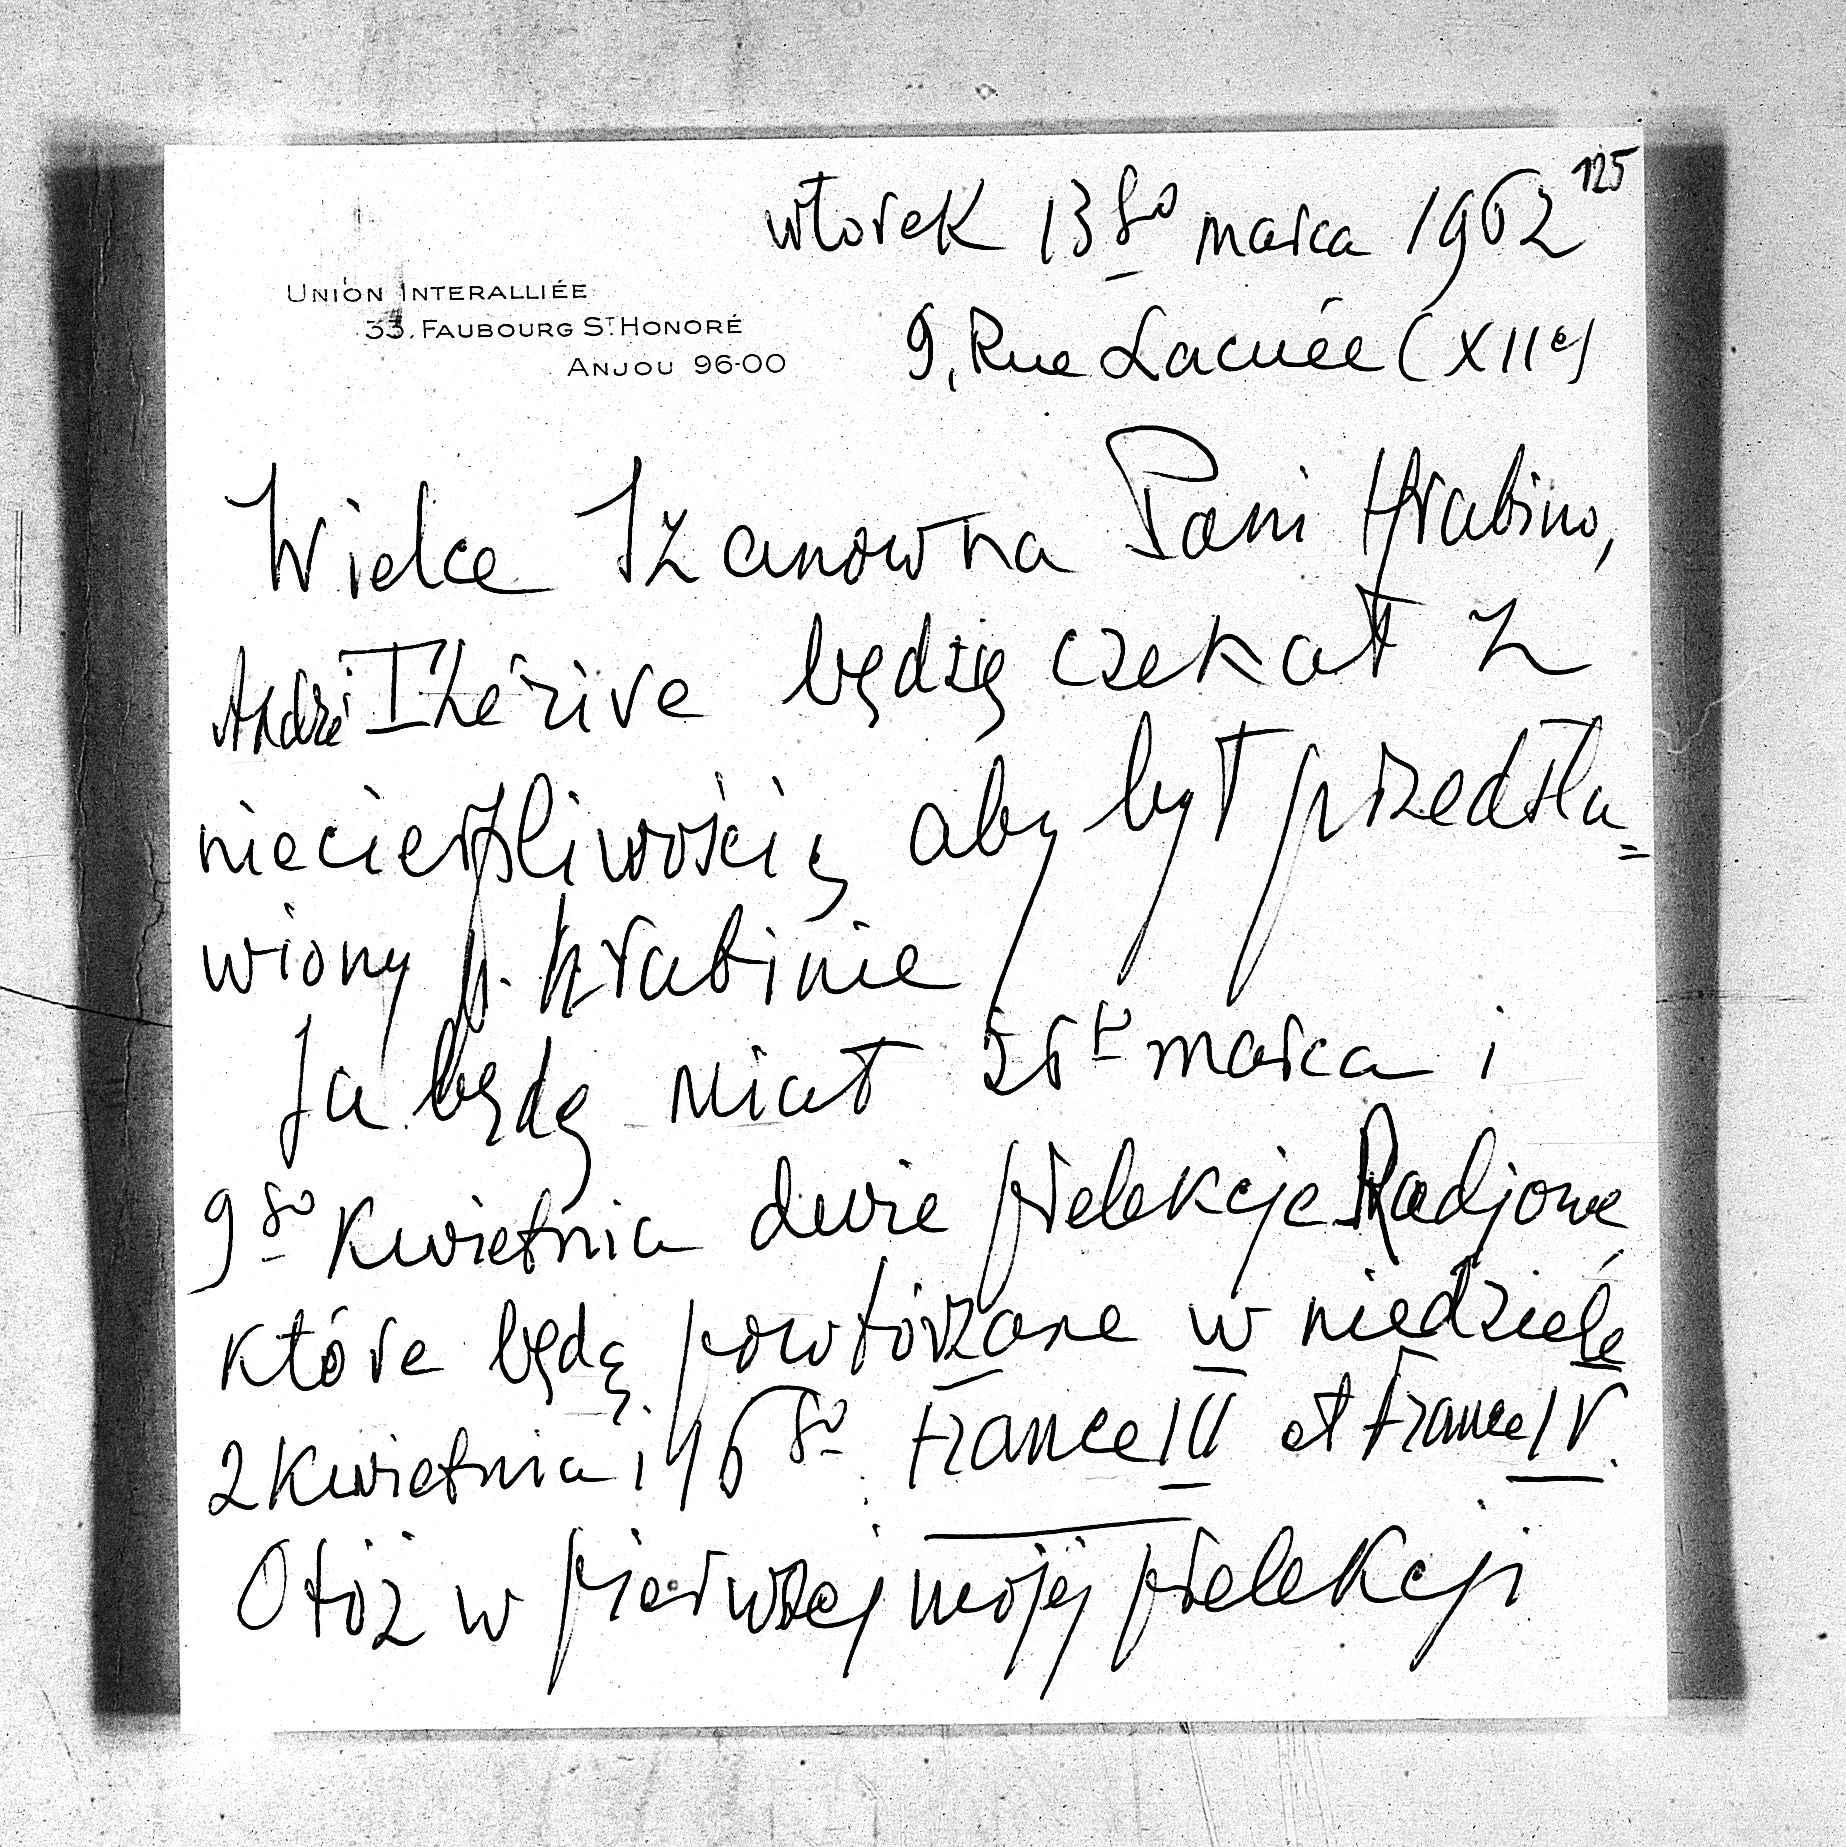 125
wtorek 13go marca 1962
UNION INTERALLIÉE
33, FAUBOURG ST HONORÉ
ANJOU 96-00
9, Rue Lacuée (XIIe)
Wielce Szanowna Pani Hrabino,
André Thérive będzię czekał z
niecierpliwością aby był przedsta=
wiony p. hrabinie
Ja będę miał 26t marca i
9go Kwietnia dwie prelekcje Radjowe
które będą powtórzone w niedzielę
2 Kwietnia i 16go France III et France IV.
Otóż w pierwszej mojej prelekcji